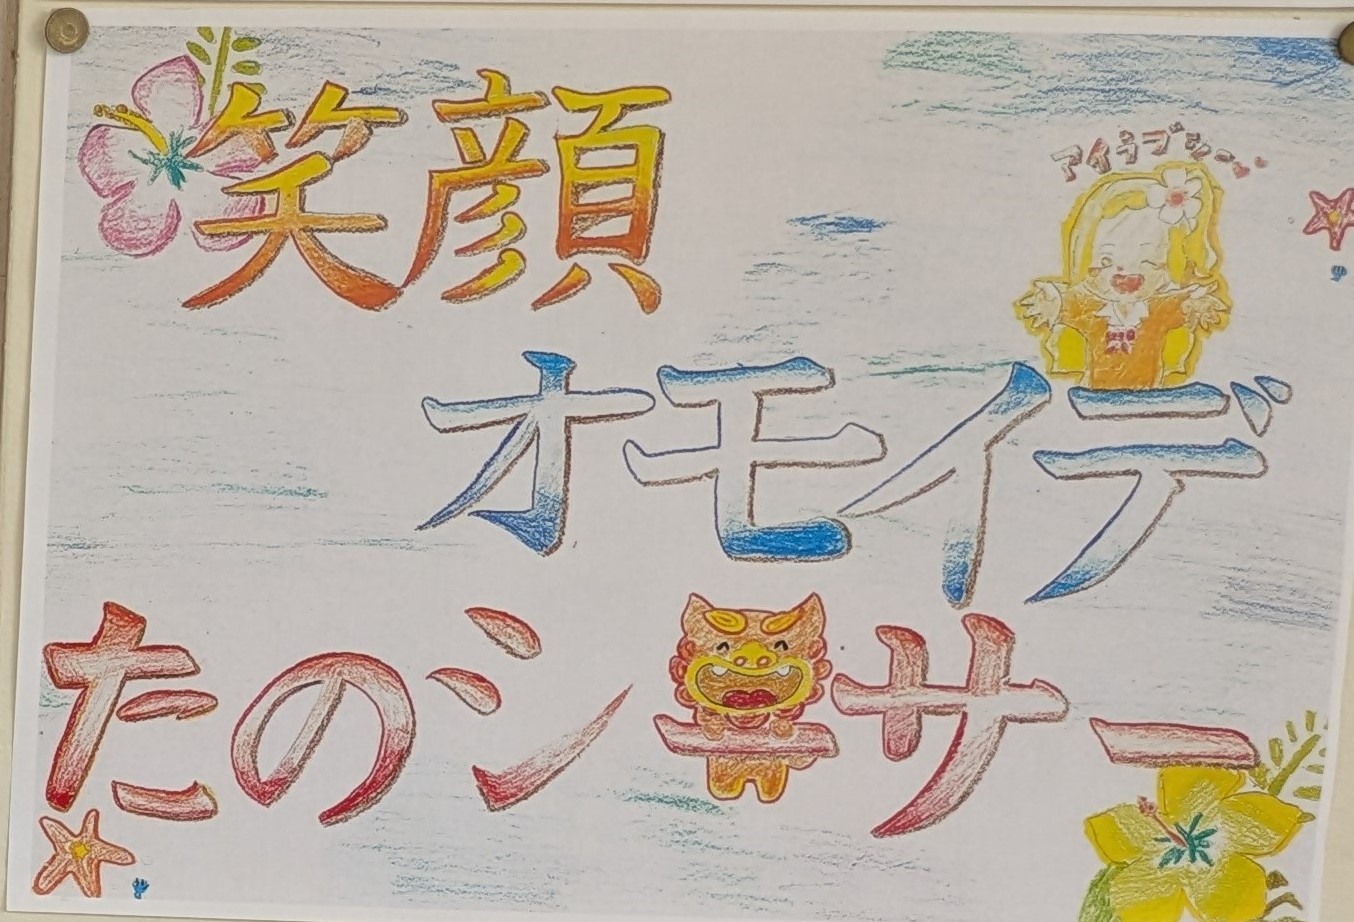 笑顔
アイラブシー♥♥
オモイデ
たのシーサー